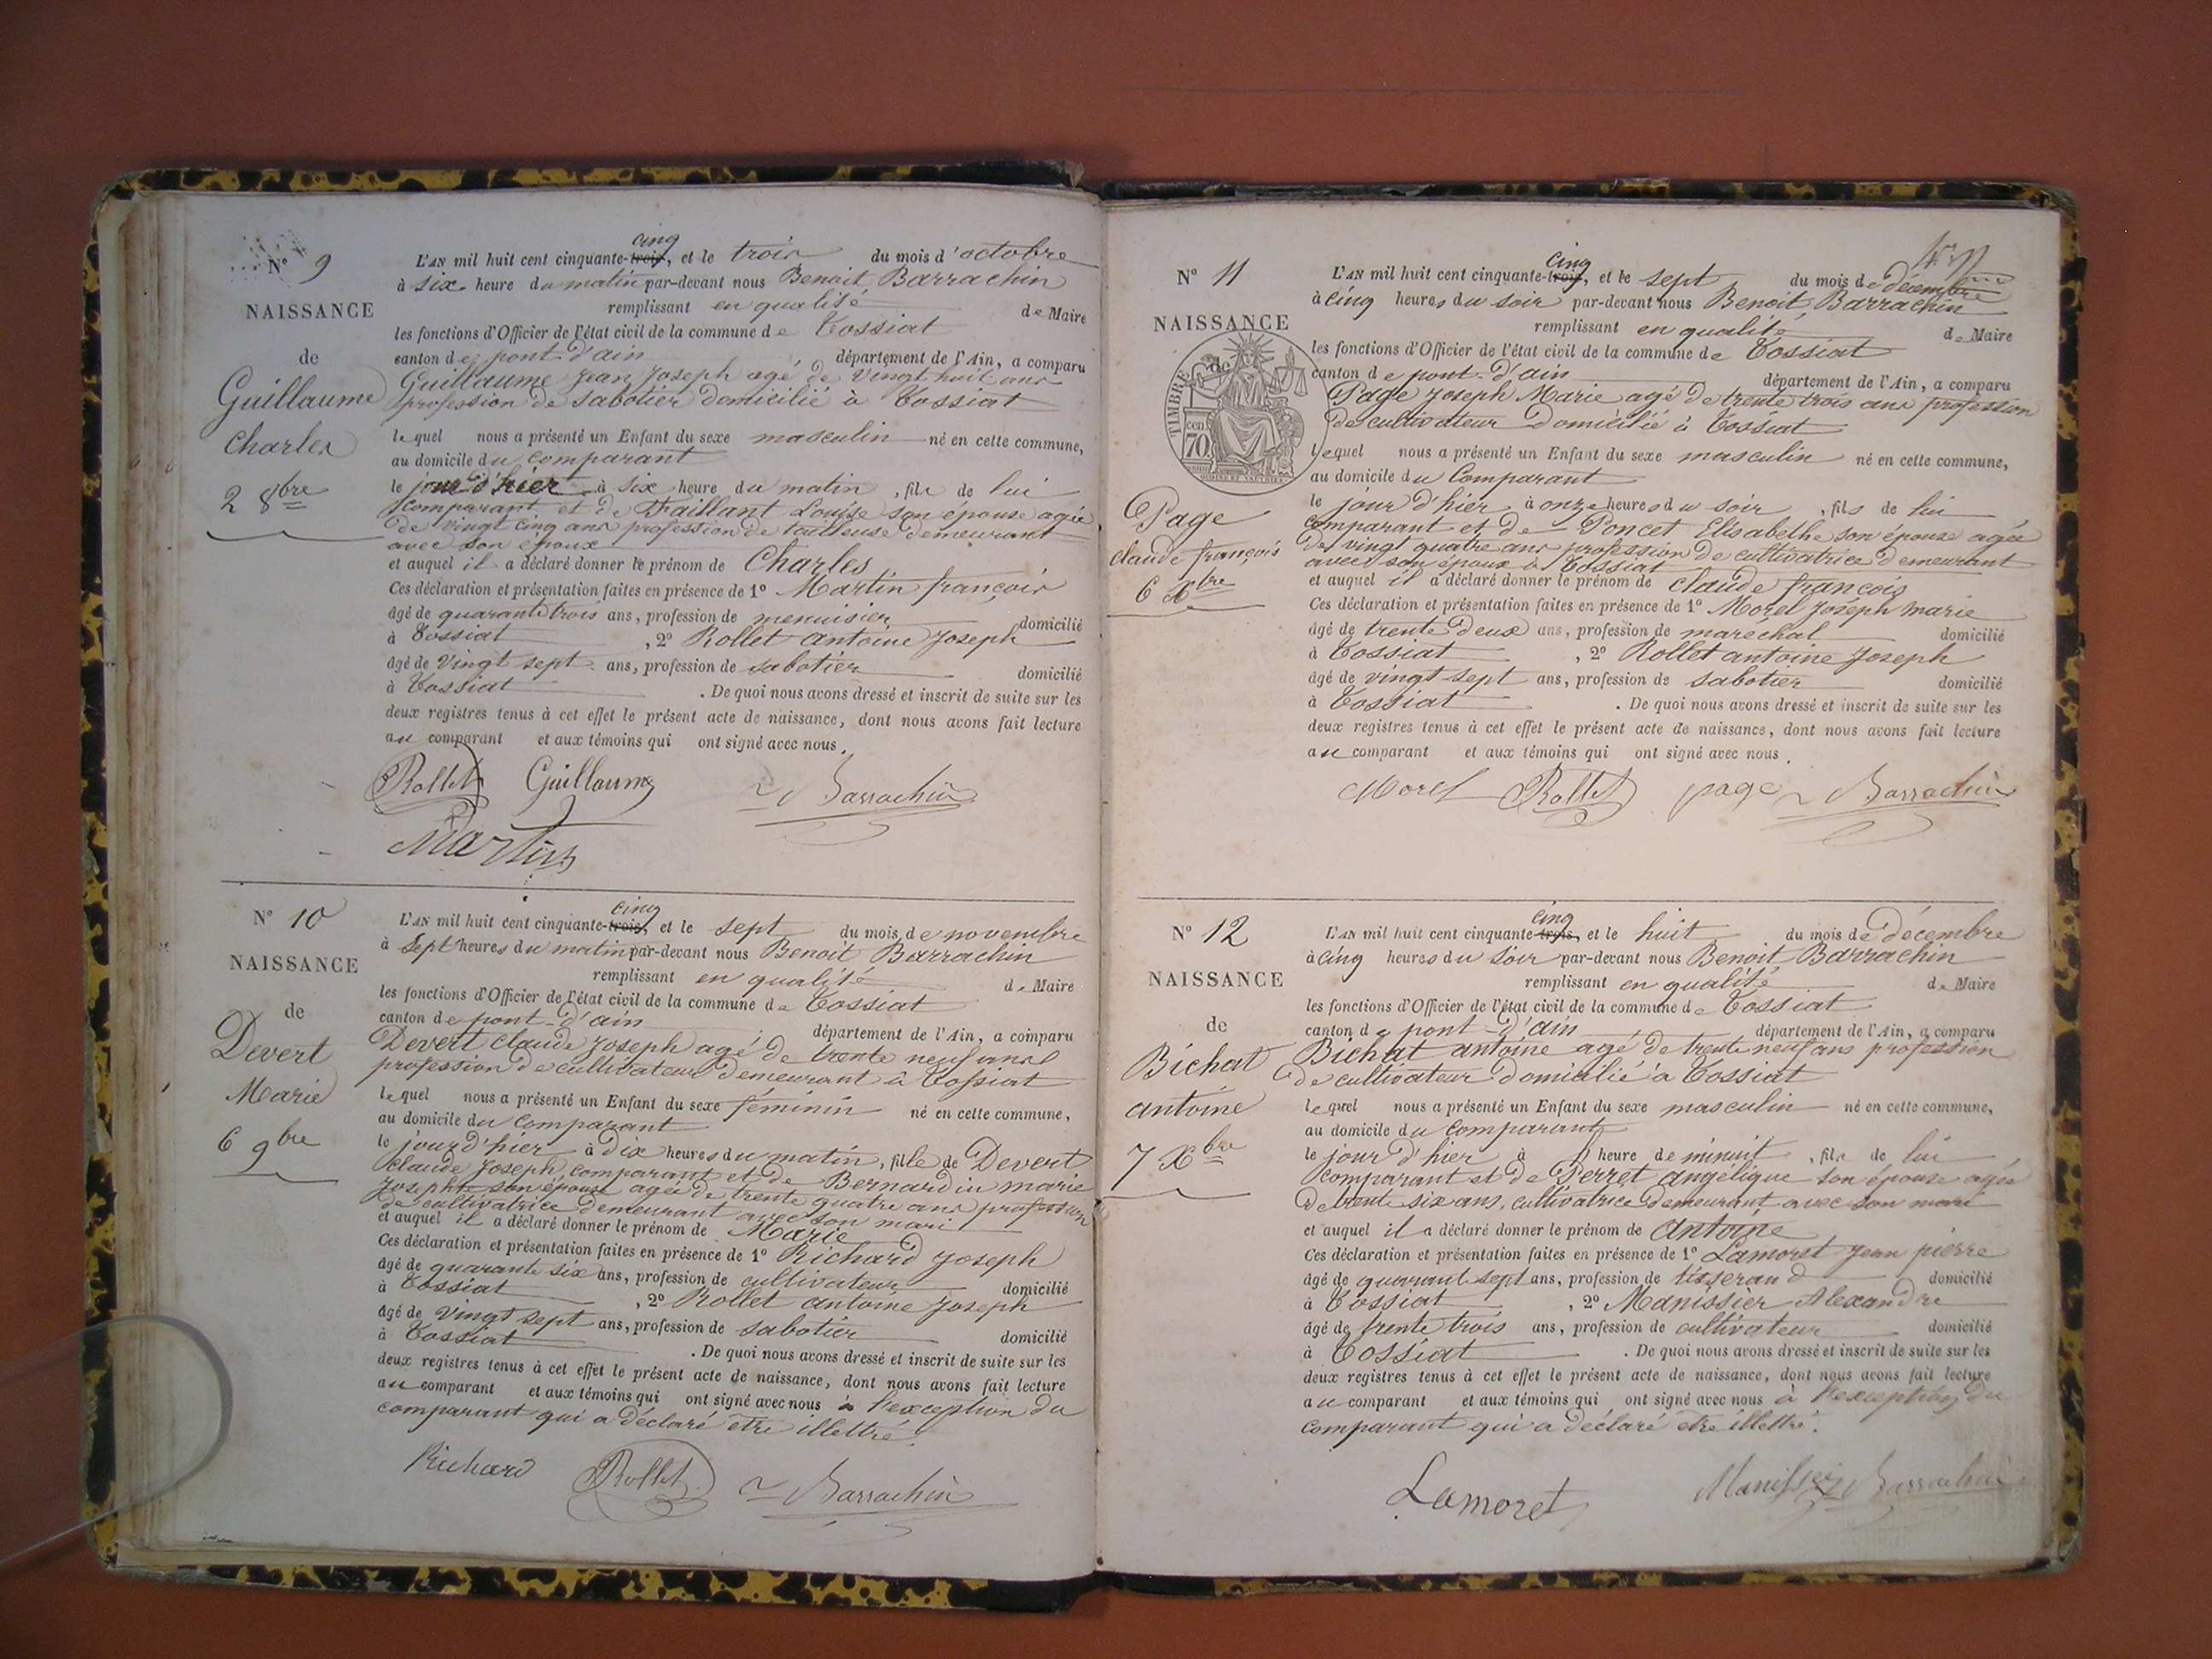 N° 9
NAISSANCE
de
Guillaume
Charles
2 8bre
cinq
L'AN mil huit cent cinquante-trois, et le trois du mois d'octobre
à six heure du matin par-devant nous Benoit Barrachin
remplissant en qualité de Maire
les fonctions d'Officier de l'état civil de la commune de Tossiat
canton de pont-d'ain département de l'Ain, a comparu
Guillaume Jean Joseph agé de vingt huit ans
profession de sabotier domicilié à Tossiat
lequel nous a présenté un Enfant du sexe masculin né en cette commune,
au domicile du comparant
le jour d'hier à six heure du matin, fils de lui
comparant et de Faillant Louise son épouse agée
de vingt cinq ans profession de tailleuse demeurant
avec son époux
et auquel il a déclaré donner le prénom de Charles
Ces déclaration et présentation faites en présence de 1° Martin françois
âgé de quarante trois ans, profession de menuisier domicilié
à Tossiat, 2° Rollet antoine Joseph
âgé de vingt sept ans, profession de sabotier domicilié
à Tossiat. De quoi nous avons dressé et inscrit de suite sur les
deux registres tenus à cet effet le présent acte de naissance, dont nous avons fait lecture
au comparant et aux témoins qui ont signé avec nous.
Rollet Guillaume Barrachin
Martin
N° 10
NAISSANCE
de
Devert
Marie
6 9bre
cinq
L'AN mil huit cent cinquante-trois, et le sept du mois de novembre
à sept heures du matin par-devant nous Benoit Barrachin
remplissant en qualité de Maire
les fonctions d'Officier de l'état civil de la commune de Tossiat
canton de pont-d'ain département de l'Ain, a comparu
Devert claude Joseph agé de trente neuf ans
profession de cultivateur demeurant à Tossiat
lequel nous a présenté un Enfant du sexe féminin né en cette commune,
au domicile du comparant
le jour d'hier à dix heures du matin, fille de Devert
claude Joseph comparant et de Bernardin marie
Josephte son épouse agée de trente quatre ans profession
de cultivatrice demeurant avec son mari
et auquel il a déclaré donner le prénom de Marie
Ces déclaration et présentation faites en présence de 1° Richard Joseph
âgé de quarante six ans, profession de cultivateur domicilié
à Tossiat, 2° Rollet antoine Joseph
âgé de vingt sept ans, profession de sabotier domicilié
à Tossiat. De quoi nous avons dressé et inscrit de suite sur les
deux registres tenus à cet effet le présent acte de naissance, dont nous avons fait lecture
au comparant et aux témoins qui ont signé avec nous à l'exception du
comparant qui a déclaré etre illettré.
Richard Rollet Barrachin
N° 11
NAISSANCE
de
TIMBRE
cen
70
Page
claude françois
6 Xbre
cinq
L'AN mil huit cent cinquante-trois, et le sept du mois de décembre
à cinq heures du soir par-devant nous Benoit Barrachin
remplissant en qualité de Maire
les fonctions d'Officier de l'état civil de la commune de Tossiat
canton de pont-d'ain département de l'Ain, a comparu
Page Joseph Marie agé de trente trois ans profession
de cultivateur domicilié à Tossiat
lequel nous a présenté un Enfant du sexe masculin né en cette commune,
au domicile du Comparant
le jour d'hier à onze heures du soir, fils de lui
comparant et de Poncet Elisabethe son épouse agée
de vingt quatre ans profession de cultivatrice demeurant
avec son époux à Tossiat
et auquel il a déclaré donner le prénom de claude françois
Ces déclaration et présentation faites en présence de 1° Morel Joseph marie
âgé de trente deux ans, profession de marechal domicilié
à Tossiat, 2° Rollet antoine Joseph
âgé de vingt sept ans, profession de sabotier domicilié
à Tossiat. De quoi nous avons dressé et inscrit de suite sur les
deux registres tenus à cet effet le présent acte de naissance, dont nous avons fait lecture
au comparant et aux témoins qui ont signé avec nous.
Morel Rollet page Barrachin
N° 12
NAISSANCE
de
Bichat
antoine
7 Xbre
cinq
L'AN mil huit cent cinquante-trois, et le huit du mois de décembre
à cinq heures du soir par-devant nous Benoit Barrachin
remplissant en qualité de Maire
les fonctions d'Officier de l'état civil de la commune de Tossiat
canton de pont-d'ain département de l'Ain, a comparu
Bichat antoine agé de trente neuf ans profession
de cultivateur domicilié à Tossiat
lequel nous a présenté un Enfant du sexe masculin né en cette commune,
au domicile du comparant
le jour d'hier à heure de minuit, fils de lui
comparant et de Perret angélique son épouse agée
de trente six ans, cultivatrice demeurant avec son mari
et auquel il a déclaré donner le prénom de Antoine
Ces déclaration et présentation faites en présence de 1° Lamoret Jean pierre
âgé de quarante sept ans, profession de tisserand domicilié
à Tossiat, 2° Manissier Alexandre
âgé de trente trois ans, profession de cultivateur domicilié
à Tossiat. De quoi nous avons dressé et inscrit de suite sur les
deux registres tenus à cet effet le présent acte de naissance, dont nous avons fait lecture
au comparant et aux témoins qui ont signé avec nous à l'exception du
comparant qui a déclaré etre illettré.
Lamoret Manissier Barrachin